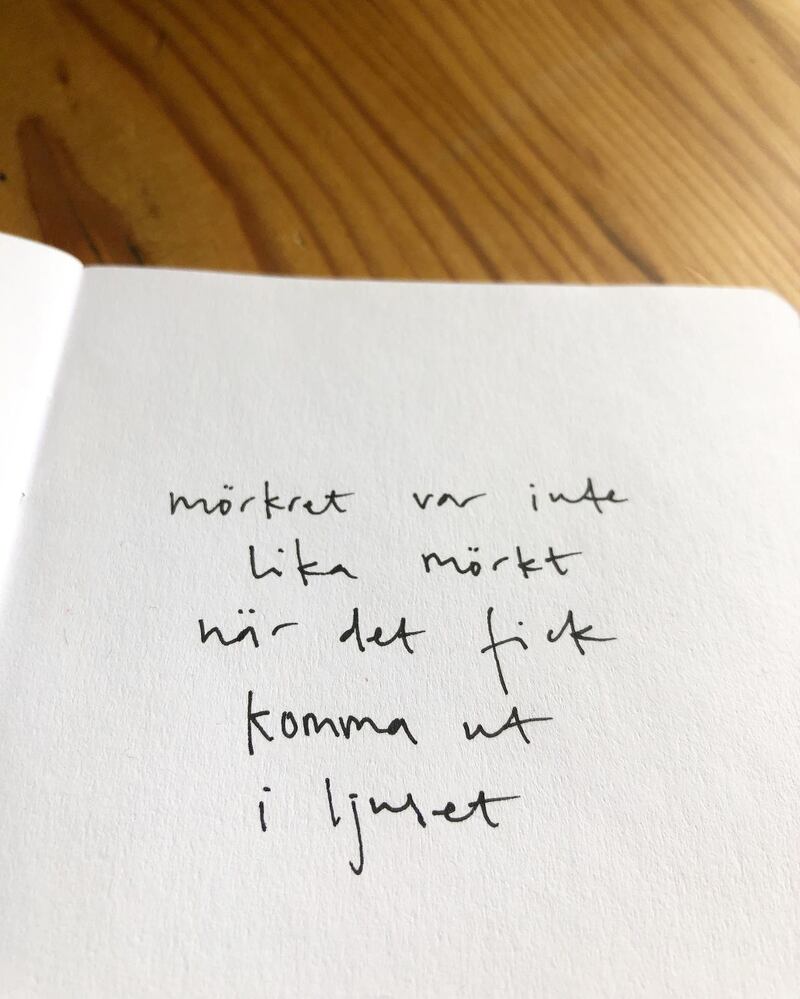 mörkret var inte
lika mörkt
när det fick
komma ut
i ljuset